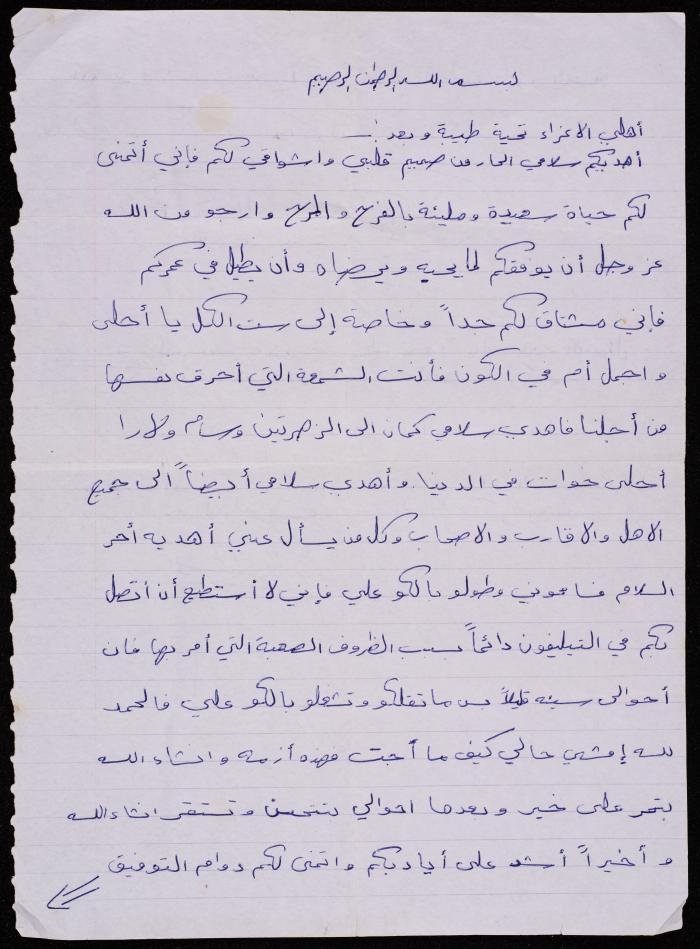 بسم الله الرحمن الرحيم
أهلي الاعزاء تحية طيبة وبعد :ـ
أهديكم سلامي الحار من صميم قلبي واشواقي لكم فإني أتمنى
لكم حياة سعيدة ومليئة بالفرح والمرح وارجو من الله
عز وجل أن يوفقكم لما يحبه ويرضاه وأن يطيل في عمركم
فإني مشتاق لكم جداً وخاصة إلى ست الكل يا أحلى
واجمل أم في الكون فأنت الشمعة التي أحرق نفسها
من أجلنا فاهدي سلامي كمان الى الزهرتين وسام ولارا
أحلى خوات في الدنيا وأهدي سلامي أيضاً الى جميع
الاهل والاقارب والاصحاب وكل من يسأل عني أهديه أحر
السلام فسامحوني وطولو بالكو علي فإني لا أستطيع أن أتصل
بكم في التيليفون دائماً بسبب الظروف الصعبة التي أمر بها فان
أحوالي سيئه قليلاً بس ما تقلكو وتشغلو بالكو علي فالحمد
لله إمشي حالي كيف ما أجت فهذه أزمه وانشاء الله
بتمر على خير وبعدها احوالي بتتحسن وتستقر انشاء الله
وأخيراً أشد على أياديكم واتمنى لكم دوام التوفيق